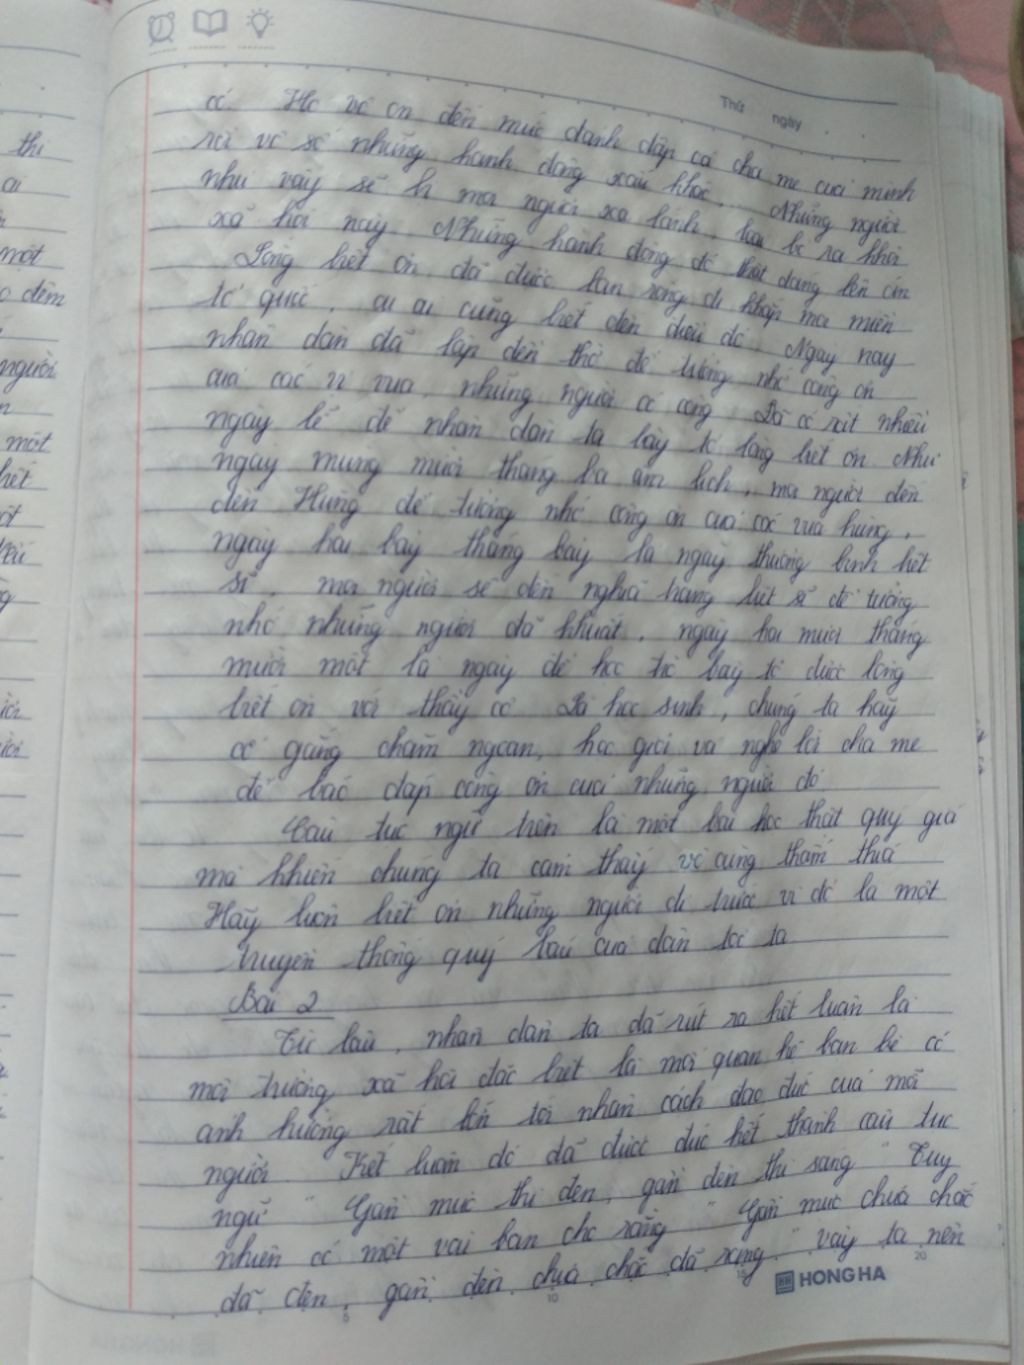 Thứ ngày
cô. Họ vô ơn đến mức đánh đập cả cha mẹ của mình
rồi vô số những hành động xấu khác... Những người
như vậy sẽ bị mọi người xa lánh, loại bỏ ra khỏi
xã hội này. Những hành động đó thật đáng lên án
Lòng biết ơn đã được lan rộng đi khắp mọi miền
tổ quốc, ai ai cũng biết đến điều đó. Ngày nay
nhân dân đã lập đền thờ để tưởng nhớ công ơn
của các vị vua, những người có công. Đã có rất nhiều
ngày lễ để nhân dân ta bày tỏ lòng biết ơn. Như
ngày mùng mười tháng ba âm lịch, mọi người đến
đền Hùng để tưởng nhớ công ơn của các vua hùng,
ngày hai bảy tháng bảy là ngày thương binh liệt
sĩ, mọi người sẽ đến nghĩa trang liệt sĩ để tưởng
nhớ những người đã khuất, ngày hai mươi tháng
mười một là ngày để học trò bày tỏ được lòng
biết ơn với thầy cô. Là học sinh, chúng ta hãy
cố gắng chăm ngoan, học giỏi và nghe lời cha mẹ
để báo đáp công ơn của những người đó
Câu tục ngữ trên là một bài học thật quý giá
mà khiến chúng ta cảm thấy vô cùng thấm thía
Hãy luôn biết ơn những người đi trước vì đó là một
truyền thống quý báu của dân tộc ta
Bài 2
Từ lâu, nhân dân ta đã rút ra kết luận là
môi trường xã hội đặc biệt là mối quan hệ bạn bè có
ảnh hưởng rất lớn tới nhân cách đạo đức của mỗi
người. Kết luận đó đã được đúc kết thành câu tục
ngữ " Gần mực thì đen, gần đèn thì sáng " Tuy
nhiên có một vài bạn cho rằng " Gần mực chưa chắc
đã đen, gần đèn chưa chắc đã rạng " vậy ta nên
HONG HA